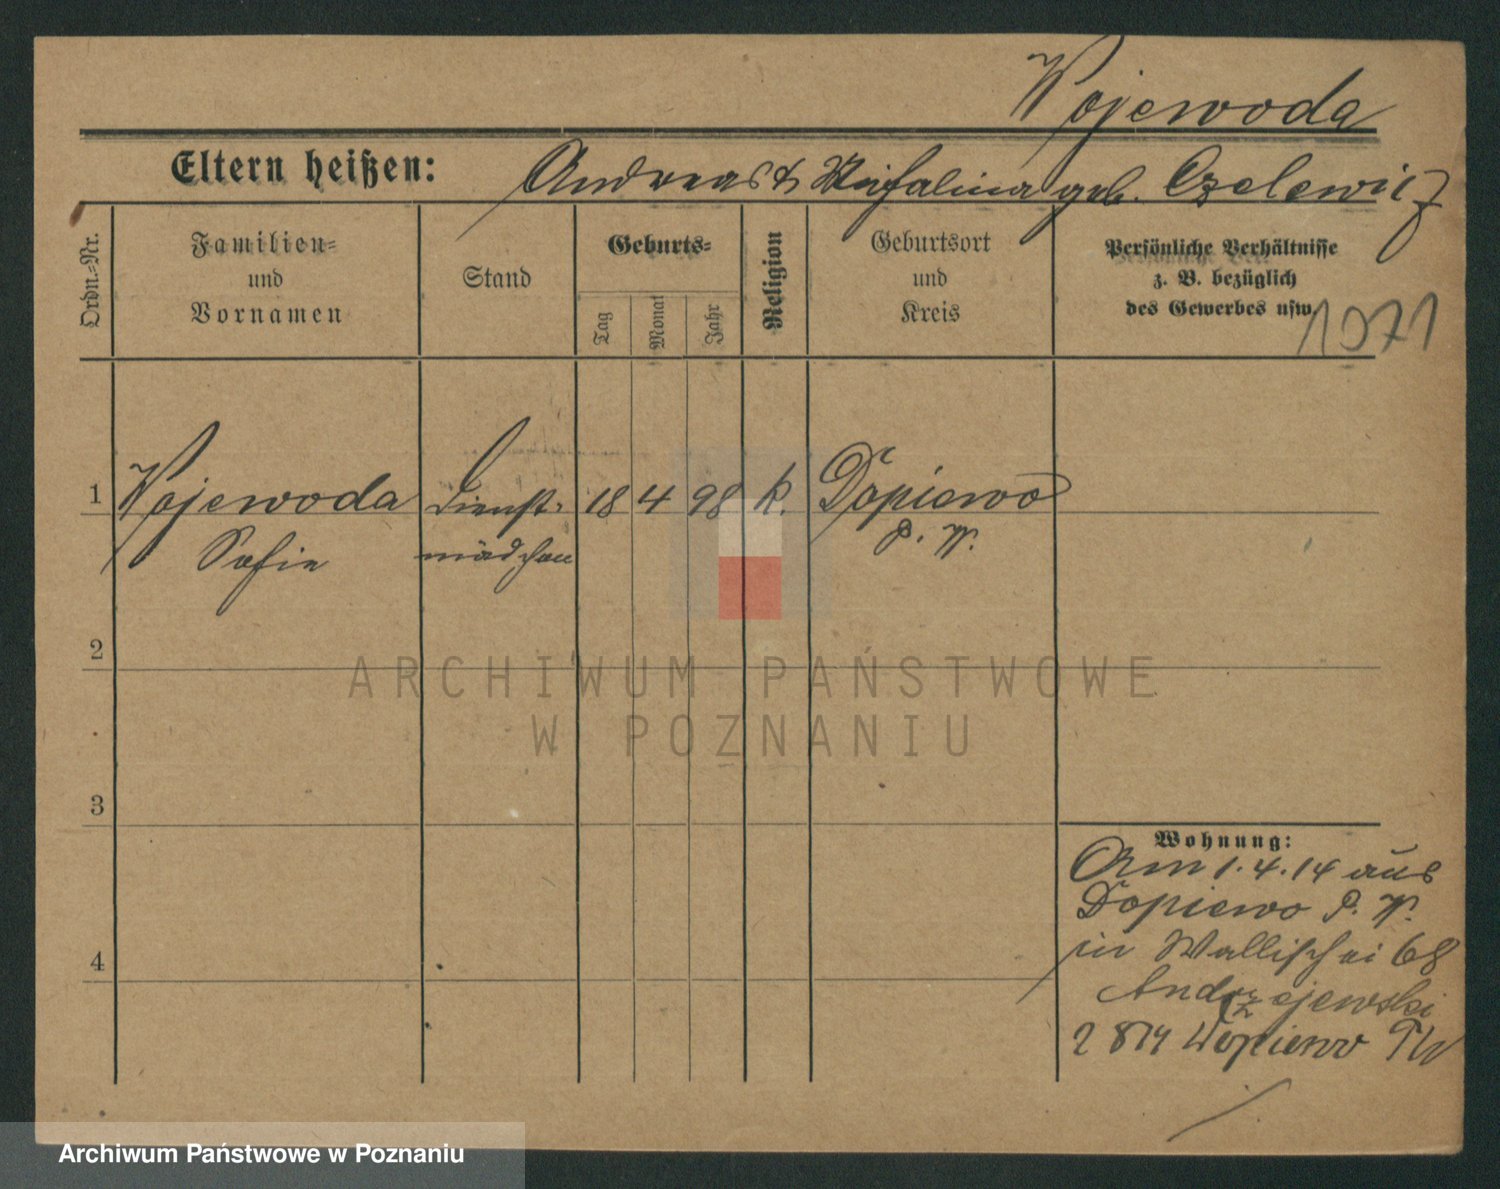 Wojewoda
Eltern heißen: Andreas & Michalina geb. Czelewicz
Ordn.-Nr.
Familien-
und
Vornamen
Stand
Geburts-
Tag
Monat
Jahr
Religion
Geburtsort
und
Kreis
Persönliche Verhältnisse
z. B. bezüglich
des Gewerbes usw.
1071
1 Wojewoda Dienst- 18 4 98 k. Dopiewo
Sofie mädchen P. W.
2
3
4
Wohnung:
Am 1.4.14 aus
Dopiewo P. W.
in Wallischei 68
Andrzejewski
2 8 14 Dopiewo PW
ARCHIWUM PAŃSTWOWE
W POZNANIU
Archiwum Państwowe w Poznaniu